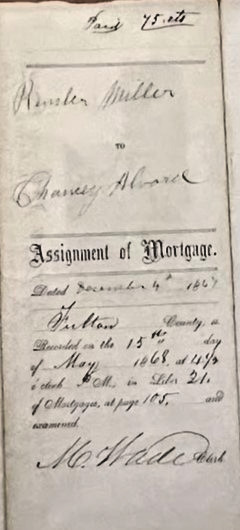 Paid 75 cts
Miller
TO
Chancey Alvord
Assignment of Mortgage.
Dated December 4th 1867
Fulton County, ss
Recorded on the 15th day
of May 1868 at 4 1/2
o'clock P M., in Liber 21.
of Mortgages, at page 105, and
examined.
M. Wade Clerk